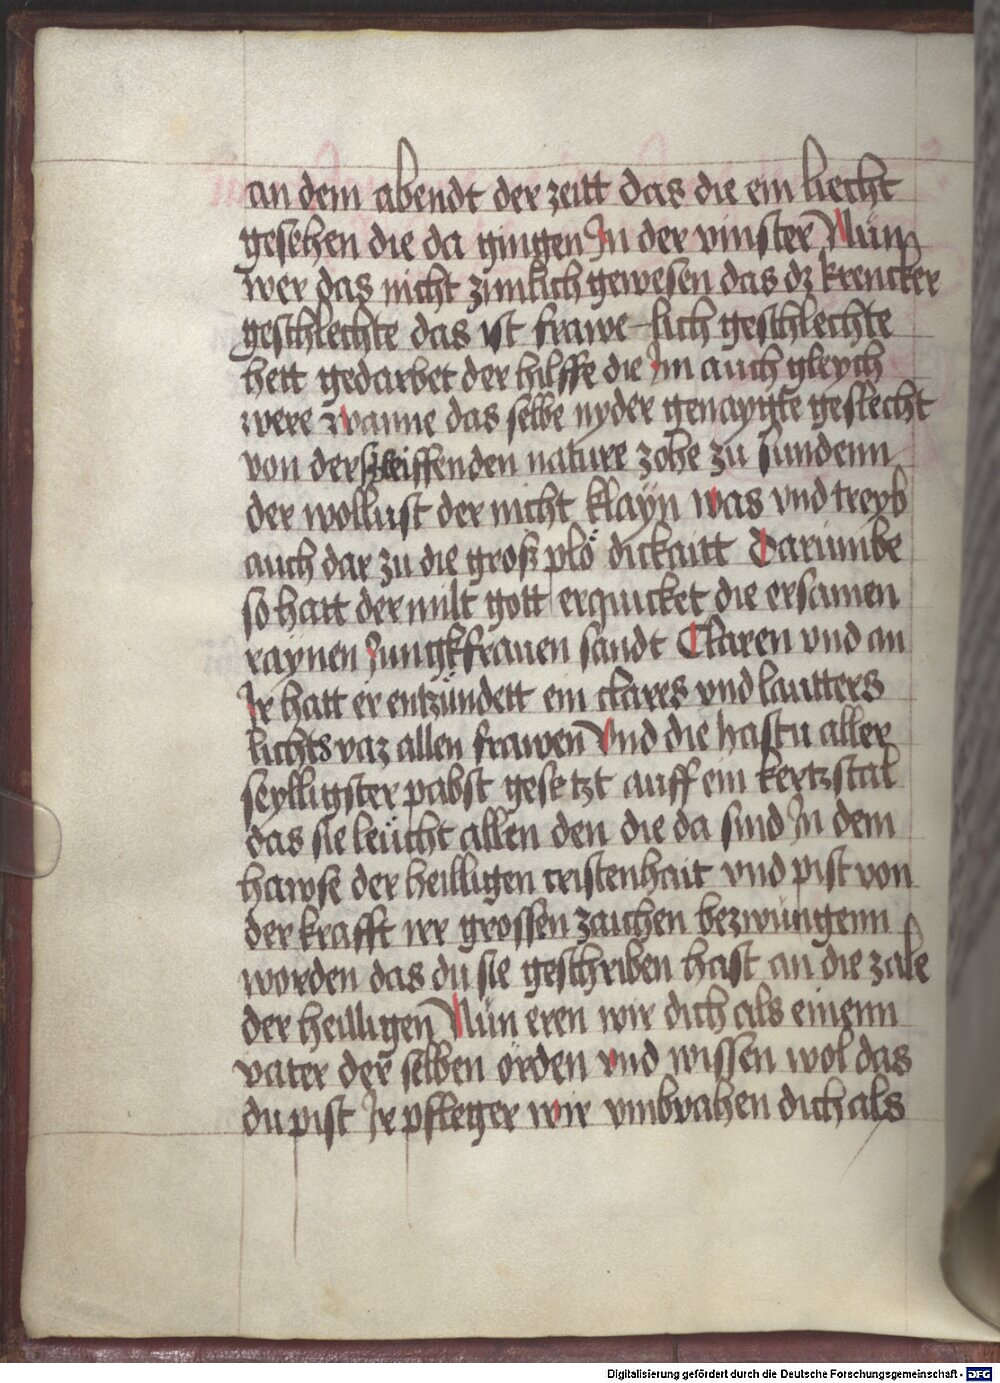 an dem abendt der zeitt das die ein liecht
gesehen die da gingen In der vinster Nün
wer das nicht zimlich gewesen das dz krencker
geschlechte das ist frawe-lich geschlechte
hett gedarbet der hilffe die Im auch gleych
were zwanne das selbe nyder genaygte geslecht
von der nature zohe zu sundenn
der wollust der nicht klayn was vnd treyb
auch dar zu die groß plo dickaitt Darumbe
so hatt der milt gott erquicket die ersamen
raynen Jungkfrauen sandt Claren vnd an
Ir hatt er entzündett ein clares vnd lautters
lichts vaz allen frawen Vnd die hastu aller
seylligster pabst gesetzt auff ein kertzstal
das sie leücht allen den die da sind In dem
hawse der heilligen cristenhait vnd pist von
der krafft irr grossen zaichen bezwüngenn
worden das du sie geschriben hast an die zale
der heilligen Nün eren wir dich als einenn
vater der selben orden vnd wissen wol das
du pist Ir pfleger wir vmbvahen dich als
Digitalisierung gefördert durch die Deutsche Forschungsgemeinschaft - DFG